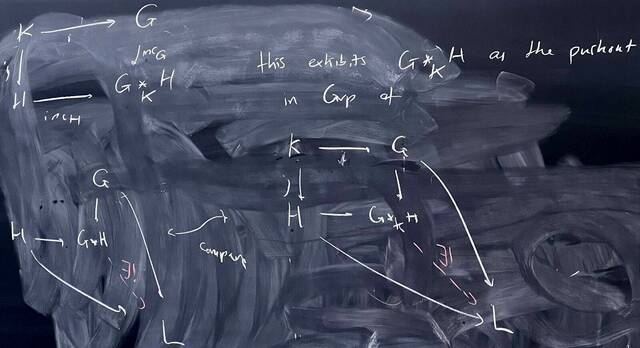 K → G
i
j
inc_G
H → G *_K H
inc_H
this exhibits G *_K H as the pushout
in Grp of
K → G
j
H → G *_K H
∃!
L
G
H → G*H
∃!
L
compare